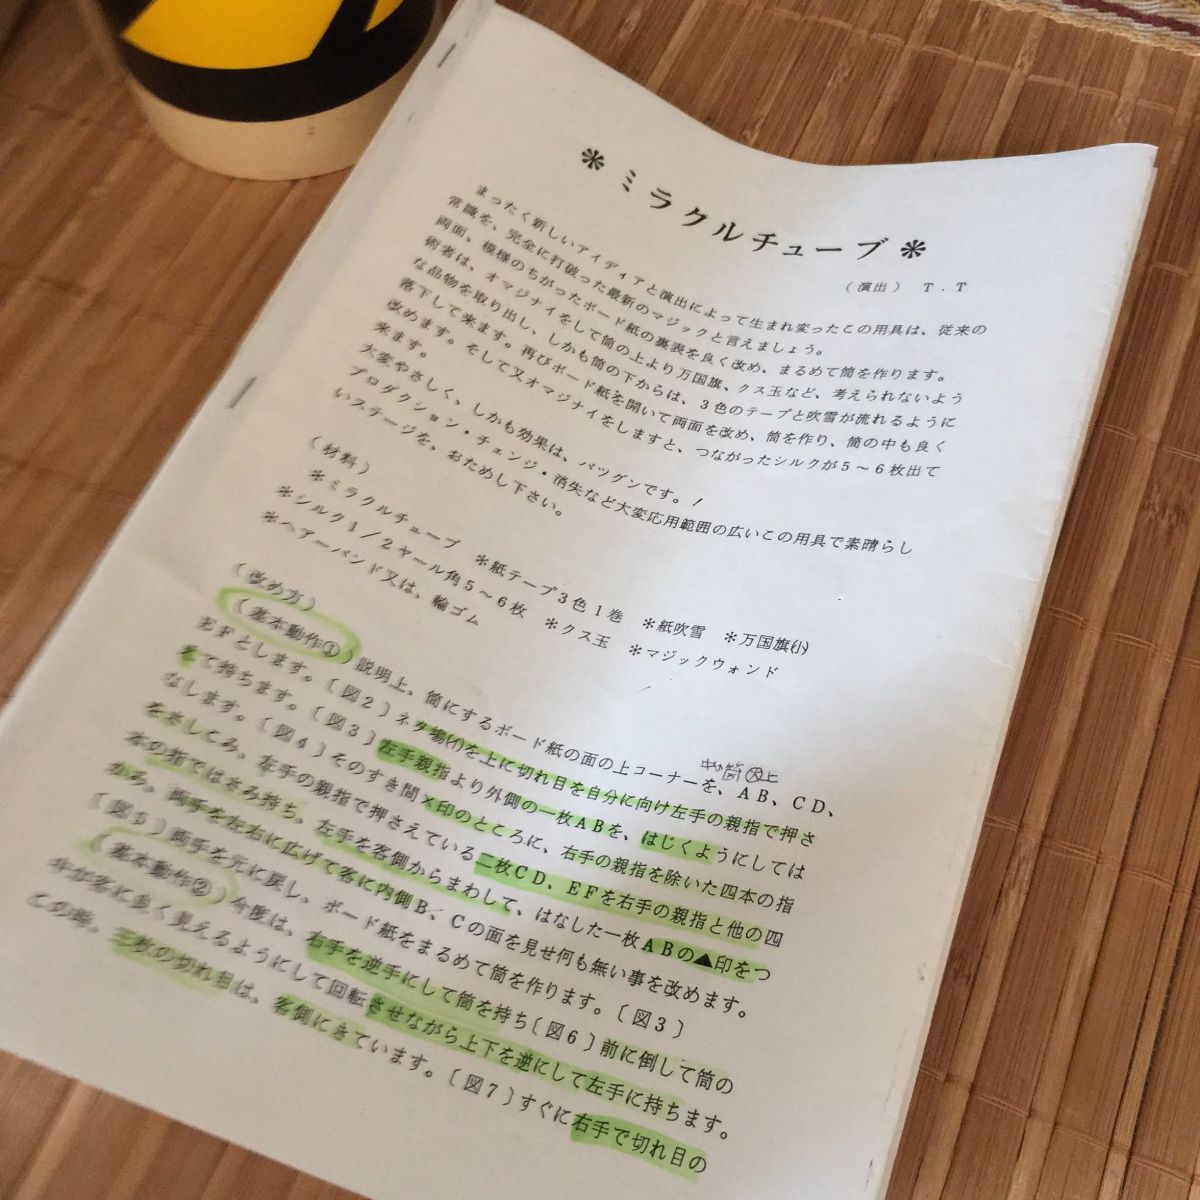 ＊ミラクルチューブ＊
（演出）　T．T
まったく新しいアイディアと演出によって生まれ変ったこの用具は、従来の
常識を、完全に打破った最新のマジックと言えましょう。
両面、模様のちがったボード紙の裏表を良く改め、まるめて筒を作ります。
術者は、オマジナイをして筒の上より万国旗、クス玉など、考えられないよう
な品物を取り出し、しかも筒の下からは、3色のテープと吹雪が流れるように
落下して来ます。再びボード紙を開いて両面を改め、筒を作り、筒の中も良く
改めます。そして又オマジナイをしますと、つながったシルクが5～6枚出て
来ます。
大変やさしく、しかも効果は、バツグンです。！
プロダクション・チェンジ・消失など大変応用範囲の広いこの用具で素晴らし
いステージを、おためし下さい。
（材料）
＊ミラクルチューブ　＊紙テープ3色1巻　＊紙吹雪　＊万国旗(小)
＊シルク1／2ヤール角5～6枚　＊クス玉　＊マジックウォンド
＊ヘアーバンド又は、輪ゴム
（改め方）
（基本動作①）説明上、筒にするボード紙の面の上コーナーを、AB、CD、
EFとします。〔図2〕ネタ場(イ)を上に切れ目を自分に向け左手の親指で押さ
えて持ちます。〔図3〕左手親指より外側の一枚ABを、はじくようにしては
なします。〔図4〕そのすき間×印のところに、右手の親指を除いた四本の指
をさしこみ、左手の親指で押さえている二枚CD、EFを右手の親指と他の四
本の指ではさみ持ち、左手を客側からまわして、はなした一枚ABの▲印をつ
かみ、両手を左右に広げて客に内側B、Cの面を見せ何も無い事を改めます。
〔図5〕両手を元に戻し、ボード紙をまるめて筒を作ります。〔図3〕
（基本動作②）今度は、右手を逆手にして筒を持ち〔図6〕前に倒して筒の
中が客に良く見えるようにして回転させながら上下を逆にして左手に持ちます。
この時、三枚の切れ目は、客側にきています。〔図7〕すぐに右手で切れ目の